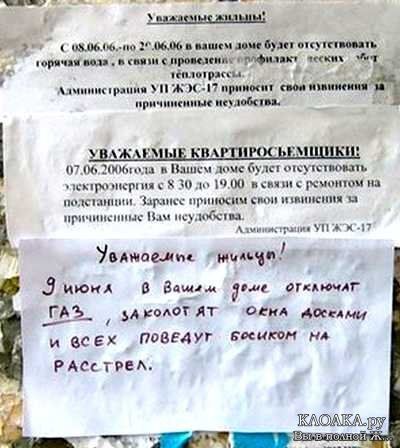 Уважаемые жильцы!
С 08.06.06.-по 26.06.06 в вашем доме будет отсутствовать
горячая вода , в связи с проведение профилакт ческих
теплотрассы.
Администрация УП ЖЭС-17 приносит свои извинения за
причиненные неудобства.
УВАЖАЕМЫЕ КВАРТИРОСЪЕМЩИКИ!
07.06.2006года в Вашем доме будет отсутствовать
электроэнергия с 8 30 до 19.00 в связи с ремонтом на
подстанции. Заранее приносим свои извинения за
причиненные Вам неудобства.
Администрация УП ЖЭС-17
Уважаемые жильцы!
9 июня в Вашем доме отключат
ГАЗ, заколотят окна досками
и всех поведут босиком на
расстрел.
КЛОАКА.ру
Вы в полной Ж...